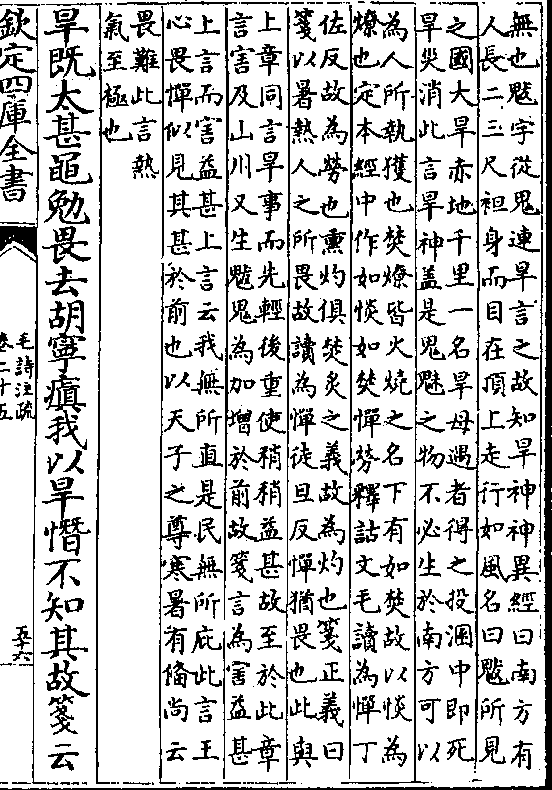 無也魃字從鬼連旱言之故知旱神神異經曰南方有
人長二三尺袒身而目在頂上走行如風名曰魃所見
之國大旱赤地千里一名旱母遇者得之投溷中即死
旱災消此言旱神蓋是鬼魅之物不必生於南方可以
為人所執獲也焚燎皆火燒之名下有如焚故以惔為
燎也定本經中作如惔如焚憚勞釋詁文毛讀為憚丁
佐反故為勞也熏灼俱焚炙之義故為灼也箋正義曰
箋以暑熱人之所畏故讀為憚徒旦反憚猶畏也此與
上章同言旱事而先輕後重使稍稍益甚故至於此章
言害及山川又生魃鬼為加增於前故箋言為害益甚
上言而害益甚上言云我無所直是民無所庇此言王
心畏憚似見其甚於前也以天子之尊寒暑有備尚云
畏難此言熱
氣至極也
旱既太甚黽勉畏去胡寧瘨我以旱憯不知其故箋云
欽定四庫全書
毛詩注疏
卷二十五
五十六